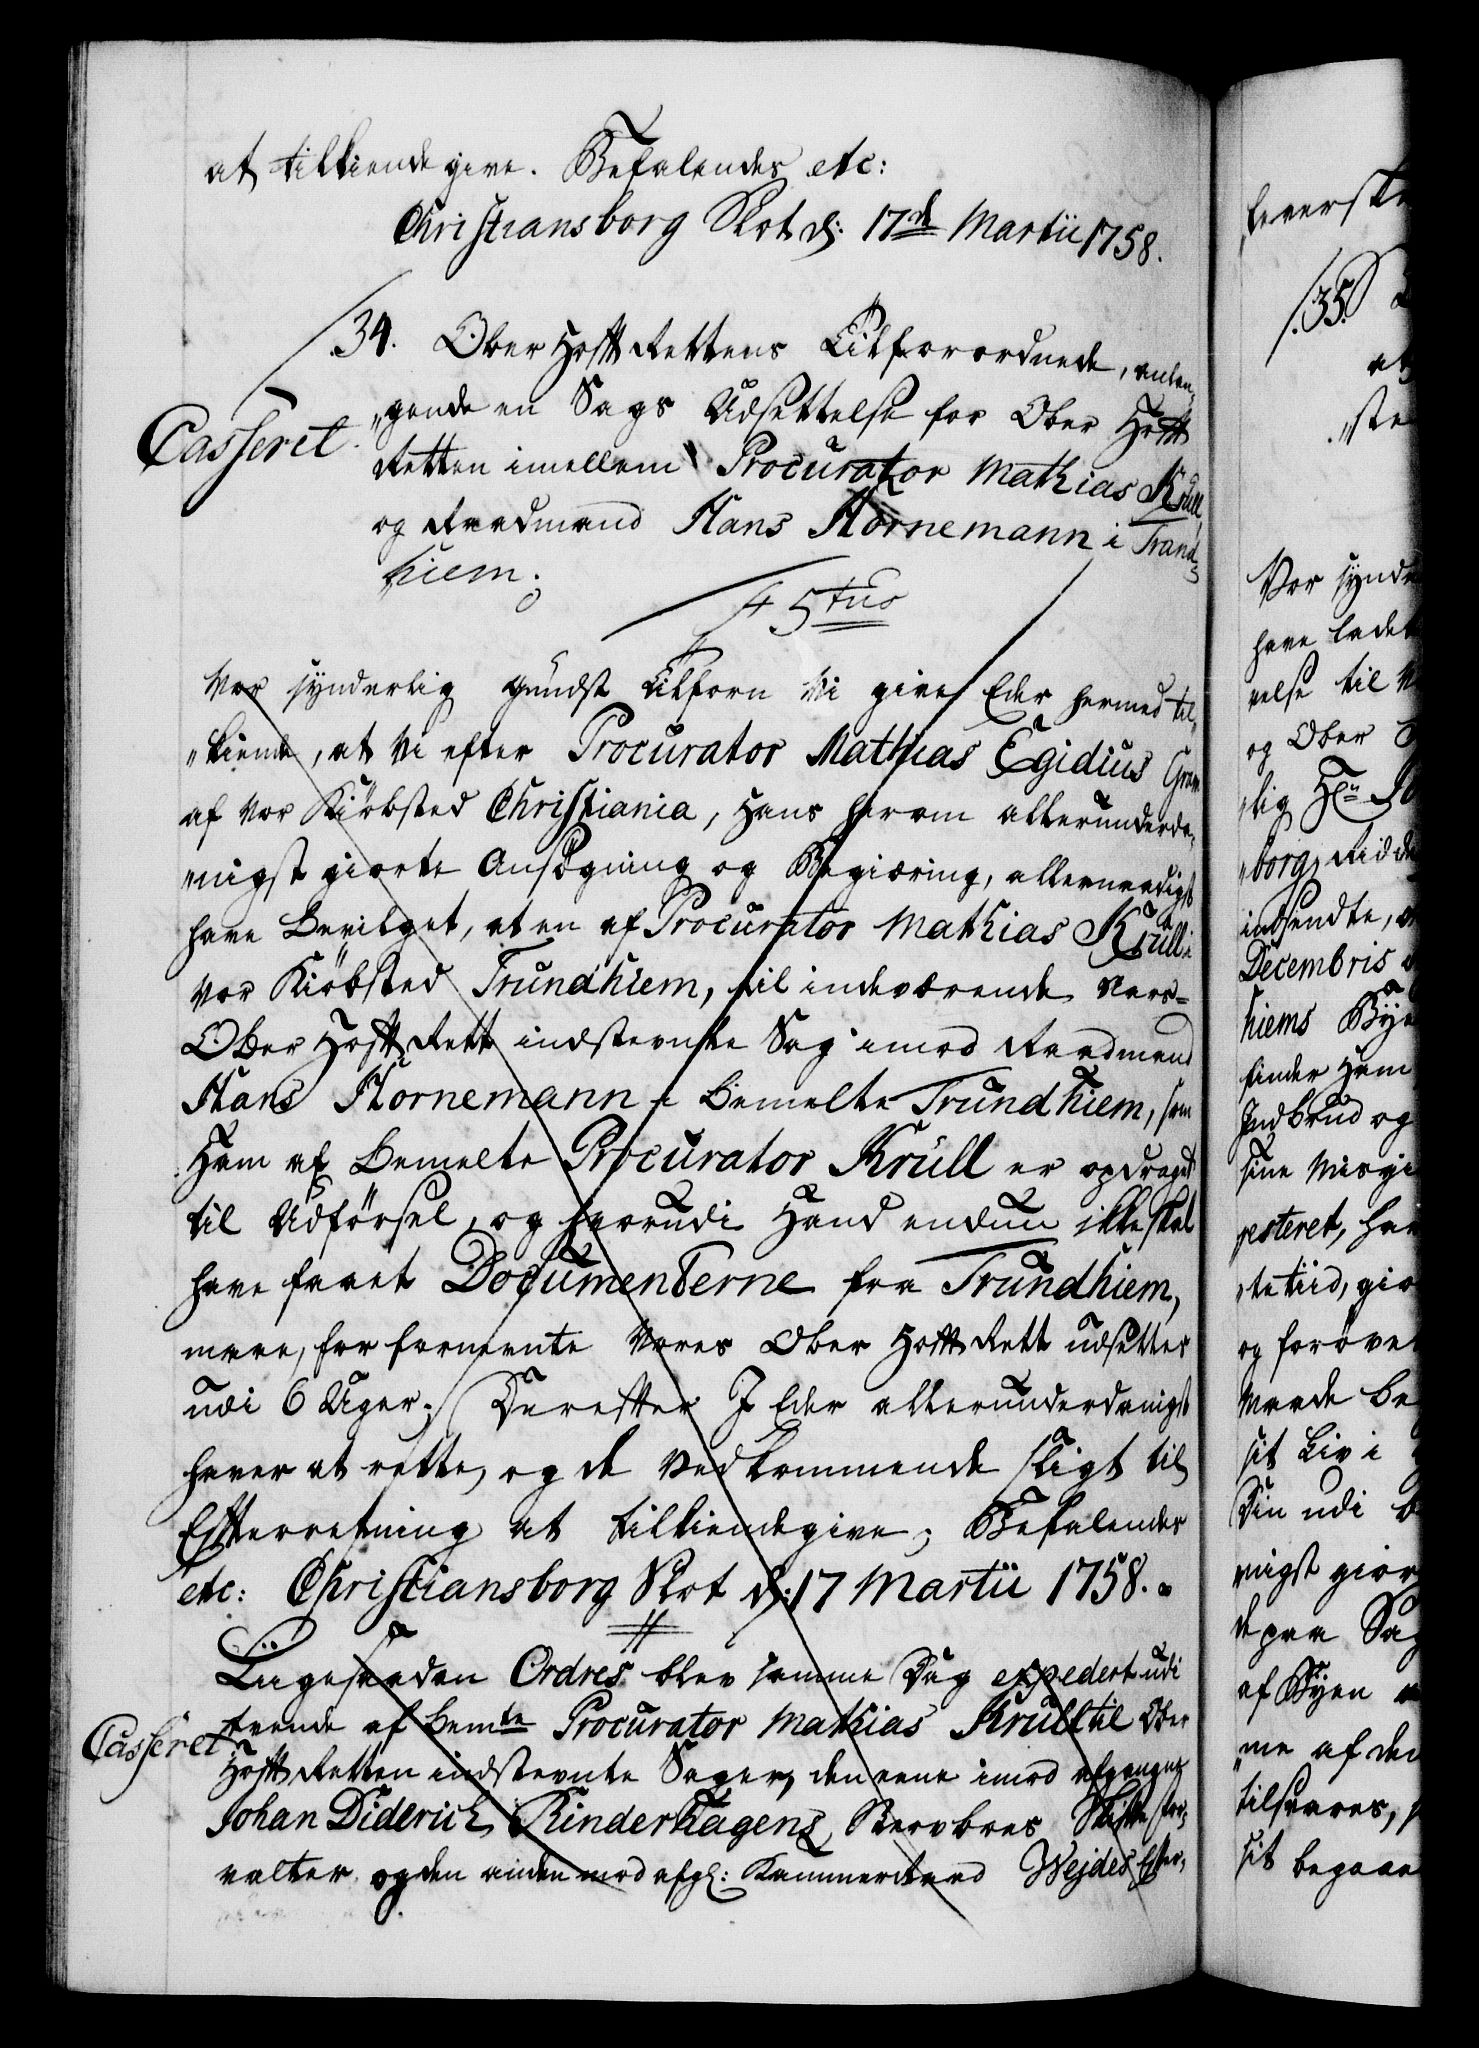 at tilkiendegive. Befalendes etc:
Christiansborg Slot d: 17de Martii 1758.
34. Ober Hoff Rettens Tilforordnede, anlan„
„gende en Sags Udsettelse for Ober Hoff
Casseret.
Retten imellem Procurator Mathias Krüll
og Raadmand Hans Hornemann i Trund„
hiem;
S 5tuo
Vor synderlig Gundst Tilforn Vi give Eder hermed til„
„kiende, at Vi efter Procurator Mathias Egidius
af vor Kiöbsted Christiania, hans herom allerunderda„
„nigst giorte Ansögning og Begiæring, allernaadigst
have bevilget, at en af Procurator Mathias Krüll i
vor Kiöbsted Trundhiem, til indeværende Aars
Ober Hoff Rett indstevnte Sag imod Raadmand
Hans Hornemann i bemelte Trundhiem, som
ham af bemelte Procurator Krüll er opdraget
til Udförsel, og hvorudi hand endnu ikke skal
have faaet Documenterne fra Trundhiem,
maae, for fornevnte Vores Ober Hoff Rett udsettes
udi 6 Uger; Derefter I Eder allerunderdanigst
haver at rette, og de vedkommende sligt til
Efterretning at tilkiendegive; Befalendes
etc: Christiansborg Slot d: 17 Martii 1758.
Liigesaadan Ordres blev samme Dag expedert udi
tvende af bemte Procurator Mathias Krull til Ober
Casseret
Hoff Retten indstevnte Sager, den eene imod afgangne
Johan Diderich Kinderhagens Sterboes Skifte for„
valter, og den anden mod afg: Kammerraad Wejdes Efter„